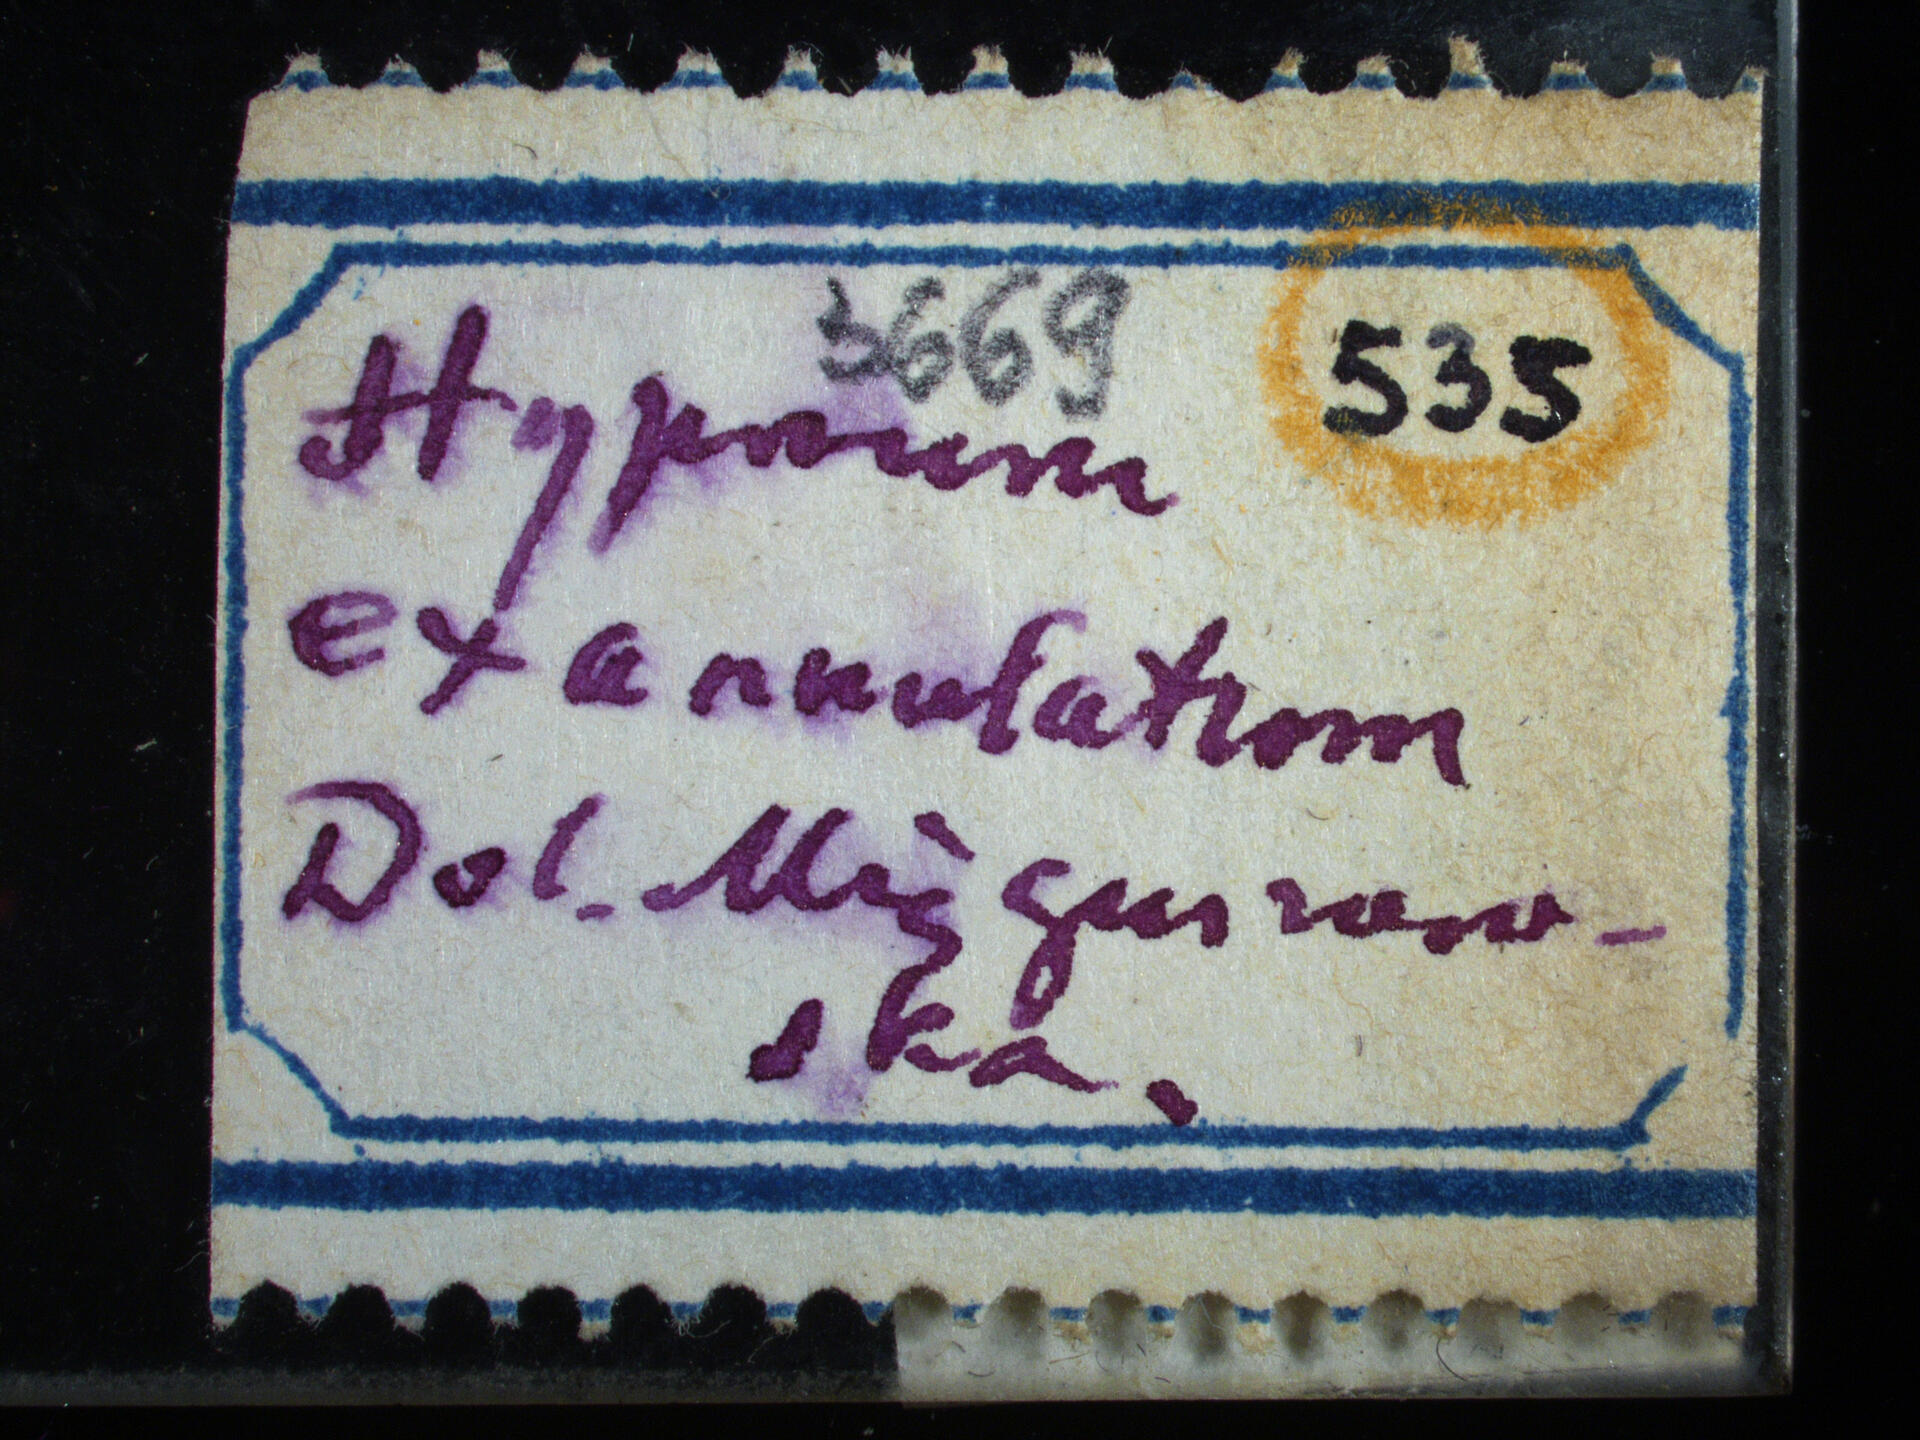 3669
535
Hypnum
exannulatum
Dol. Mięguszow-
ska.